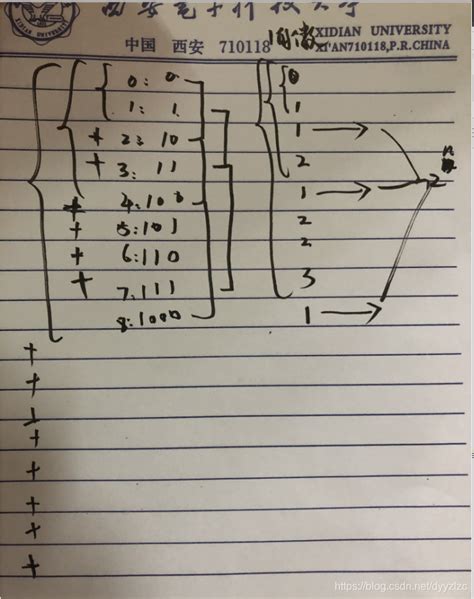 XIDIAN UNIVERSITY
中国 西安 710118 XI'AN710118,P.R.CHINA
0: 0 0
1: 1 1
+ 2: 10 1
+ 3: 11 2
+ 4: 100 1
+ 5: 101 2
+ 6: 110 2
+ 7: 111 3
8: 1000 1
+
+
+
+
+
+
+
+
https://blog.csdn.net/dyyzlzc